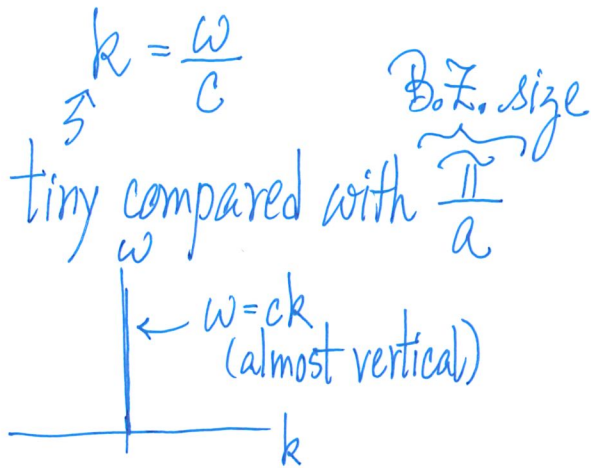 k = ω/c
B.Z. size
tiny compared with π/a
ω
ω = ck
(almost vertical)
k